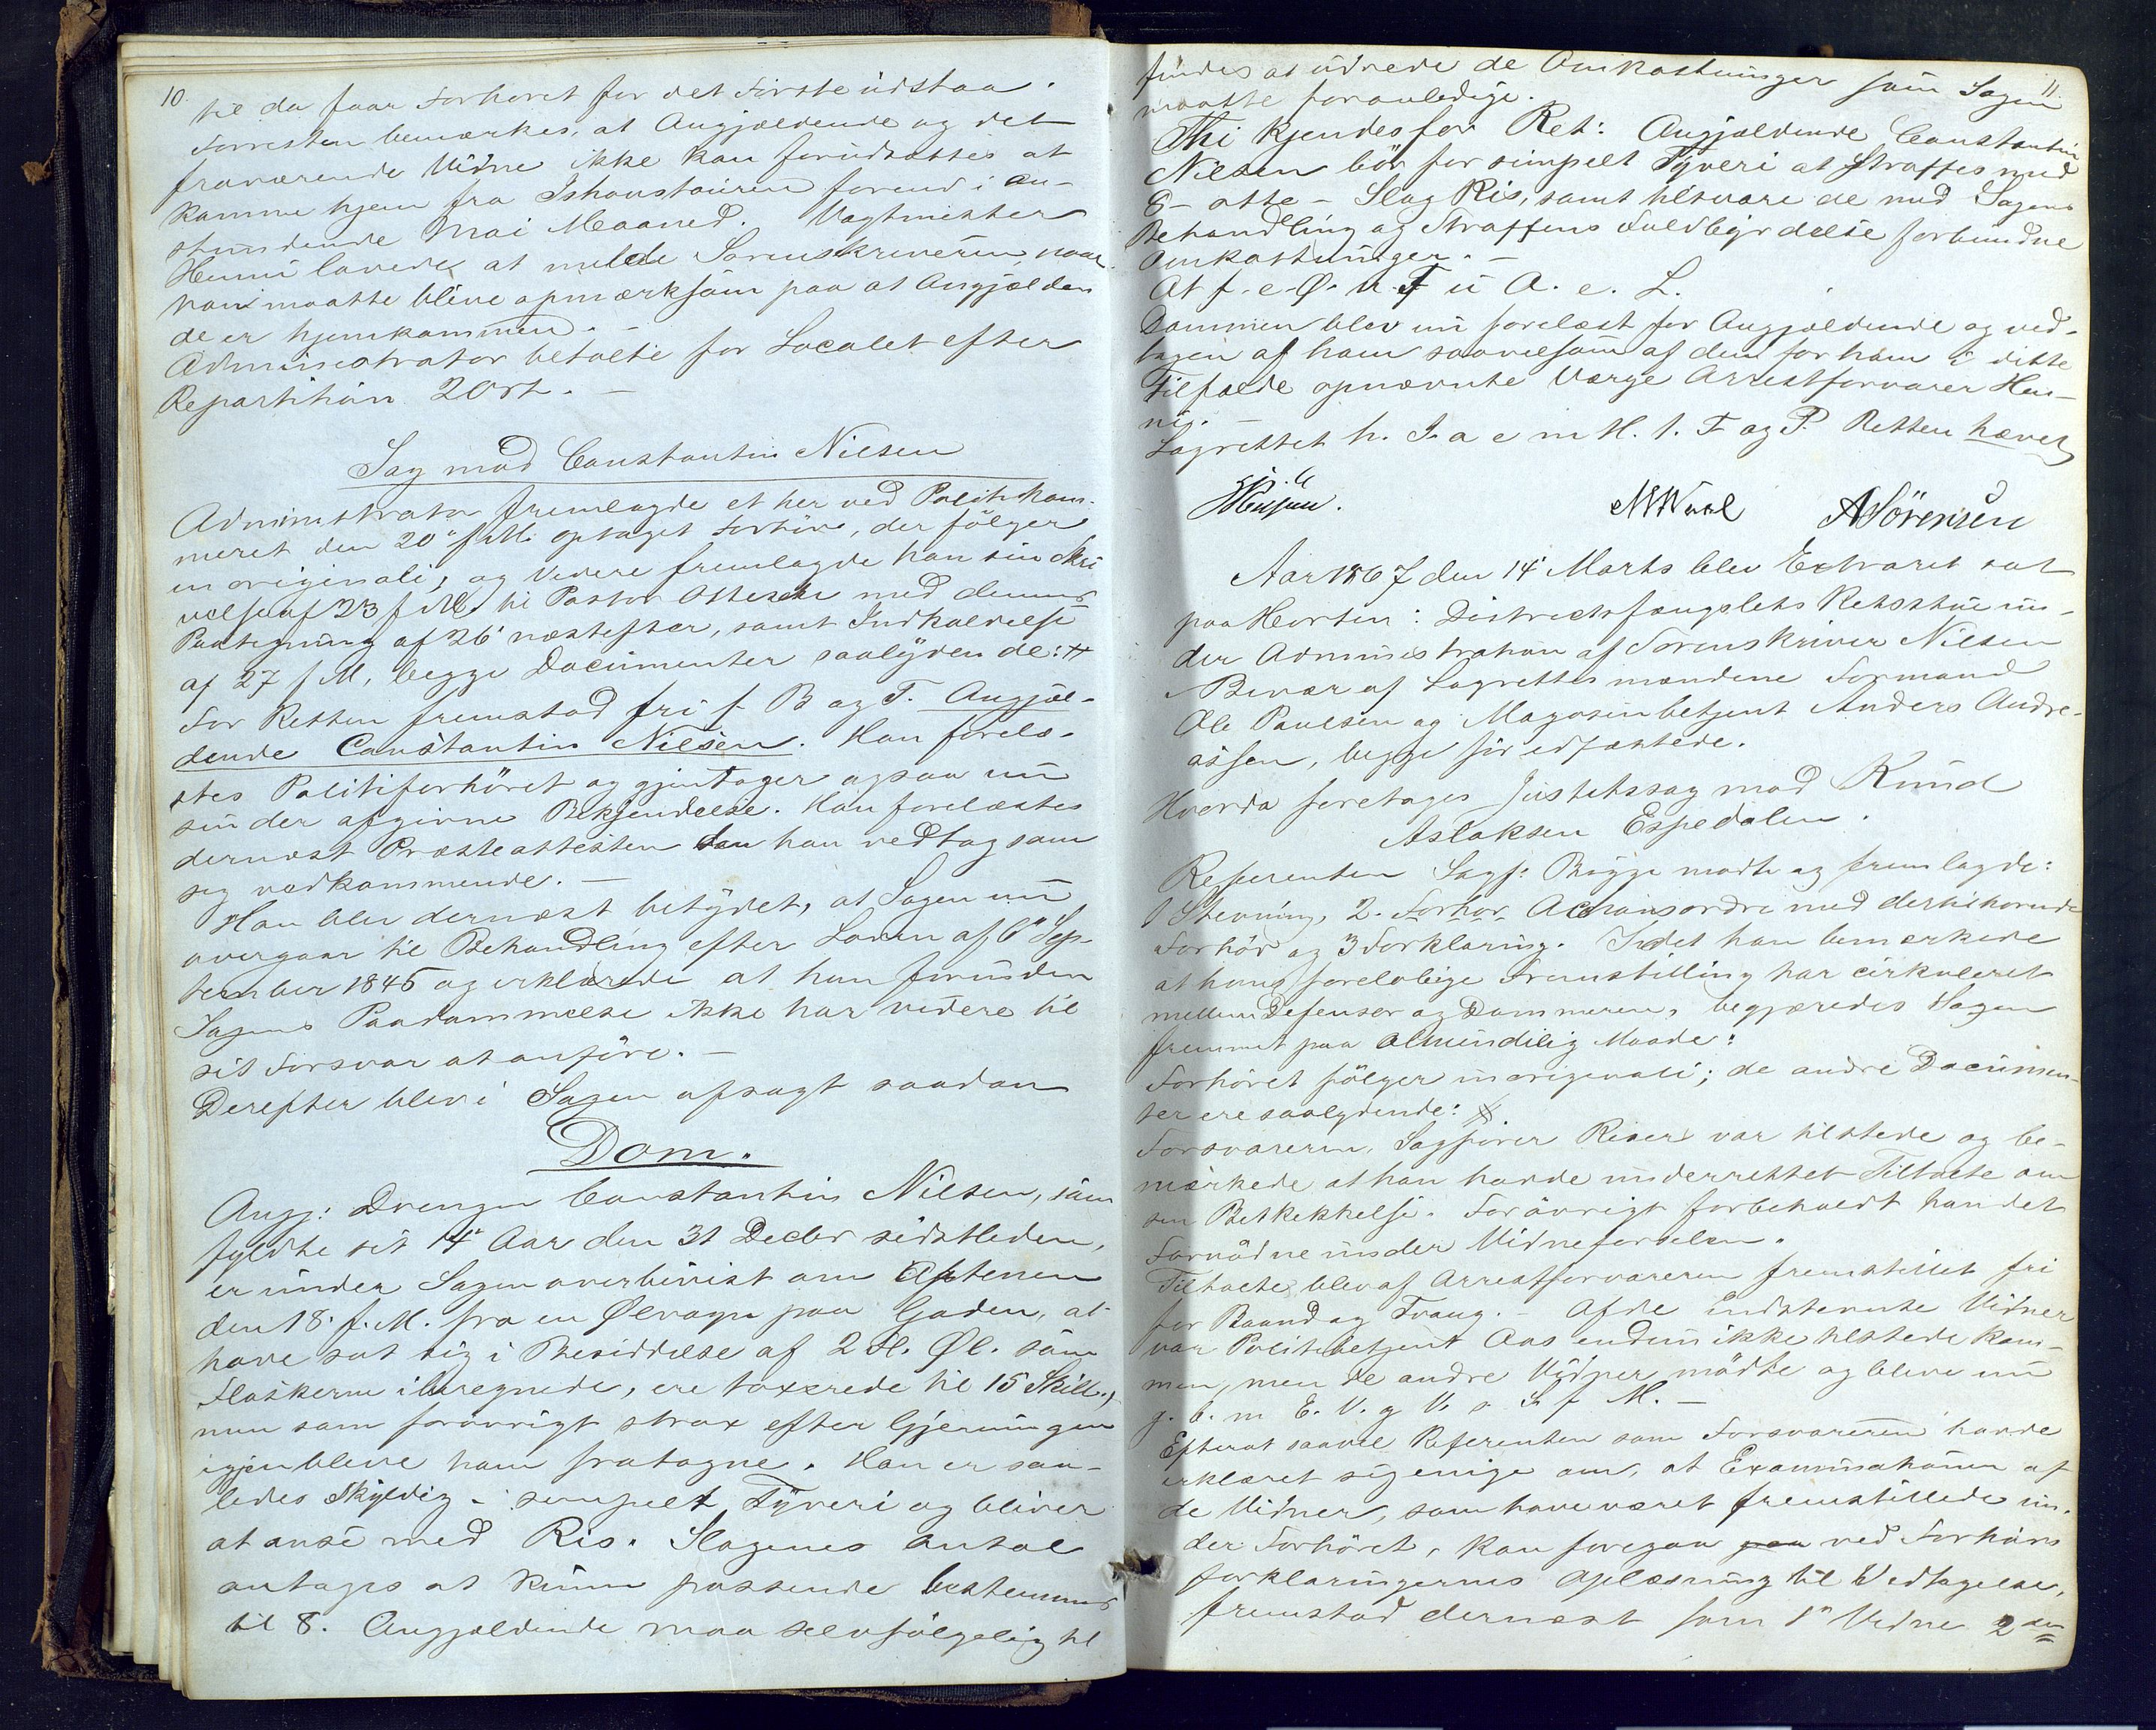 10.
til da faar Forhøret for det første udstaa.
Forresten bemærkes, at Angjældende og det
fraværende Vidne ikke kan forudsættes at
komme hjem fra Ishavstouren forend i an-
stundende Mai Maaned. Vagtmester
Hennig lovede at melde Sorenskriveren naar
han maatte blive opmærksom paa at Angjælden
de er hjemkommen. -
Administrator betalte for Localet efter
Repartition 20 ort. -
Sag mod Constantin Nielsen
Administrator fremlagde et her ved Politikam-
meret den 20' f. M. optaget Forhør, der følger
in originali, og videre fremlagde han sin Skri
velse af 23 f. M. til Pastor Ottesen med dennes
Paategning af 26' næstefter, samt Indkaldelse
af 27 f M, begge Documenter saalydende:
For Retten fremstod fri f B og T. Angjæl-
dende Constantin Nielsen. Han forelæ-
stes Politiforhøret og gjentager ogsaa nu
sin der afgivne Bekjendelse. Han forelæstes
dernæst Præsteattesten som han vedtog som
sig vedkommende. -
Han blev dernæst betydet, at Sagen nu
overgaar til Behandling efter Loven af 6' Sep-
tember 1845 og erklærede at han foruden
Sagens Paadømmelse ikke har videre til
sit Forsvar at anføre. -
Derefter blev i Sagen afsagt saadan
Dom.
Angj: Drengen Constantin Nielsen, som
fyldte sit 14' Aar den 31 Decbr sidstleden,
er under Sagen overbevist om Aftenen
den 18' f. M. fra en Ølvogn paa Gaden, at
have sat sig i Besiddelse af 2 Fl. Øl. som
Flaskerne iberegnede, ere taxerede til 15 Skill.,
men som forøvrigt strax efter Gjerningen
igjen bleve ham fratagne. Han er saa-
ledes skyldig i simpelt Tyveri og bliver
at ansé med Ris. Slagenes Antal
antages at kunne passende bestemmes
til 8. Angjældende maa selvfølgelig til
11.
findes at udrede de Omkostninger som Sagen
maatte foranledige.
Thi kjendes for Ret: Angjældende Constantin
Nielsen bør for simpelt Tyveri at straffes med
8 - otte - Slag Ris, samt tilsvare de med Sagens
Behandling og Straffens Fuldbyrdelse forbundne
Omkostninger. -
At f. e. Ø. u. T u A. e. L.
Dommen blev nu forelæst for Angjældende og ved-
tagen af ham saavelsom af den for ham i dette
Tilfælde opnævnte Værge Arrestforvarer Hen-
nig.
Lagrettet h. I. a e m H. 1. F og P. Retten hævet
ASörensen
Aar 1867 den 14' Marts blev Extraret sat
paa Horten: Districtsfængslets Retsstue un-
der Administration af Sorenskriver Nielsen
Bivær af Lagrettesmændene Formand
Ole Paulsen og Magasinbetjent Anders Andre-
assen, begge før edfæstede.
Hvorda foretages Justitssag mod Knud
Aslaksen Espedalen.
Referenten Sagf: Bügge mødte og fremlagde:
1 Stevning, 2. Forhør. Actionsordre med derhehørende
Forhør og 3 Forklaring. Idet han bemærkede
at hans foreløbige Fremstilling har cirkuleret
mellem Defensor og Dommeren, begjæredes Sagen
fremmet paa almindelig Maade:
Forhøret følger in originali; de andre Documen-
ter ere saalydende:
Forsvareren, Sagfører Riser var tilstede og be-
mærkede at han havde underrettet Tiltalte om
sin Beskikkelse. Forøvrigt forbeholdt han det
Fornødne under Vidneførselen.
Tiltalte blev af Arrestforvareren fremstillet fri
for Baand og Tvang. - Af de indstevnte Vidner
var Politibetjent Aas endnu ikke tilstede kom-
men, men de andre Vidner mødte og bleve nu
g. b. m E. V. g V. s S f M. -
Efterat saavel Referenten som Forsvareren havde
erklæret sig enige om, at Examinationen af
de Vidner, som have været fremstillede un-
der Forhøret, kan foregaa paa ved Forhørs
forklaringernes Oplæsning til Vedtagelse,
fremstod dernæst som 1' Vidne 2 det